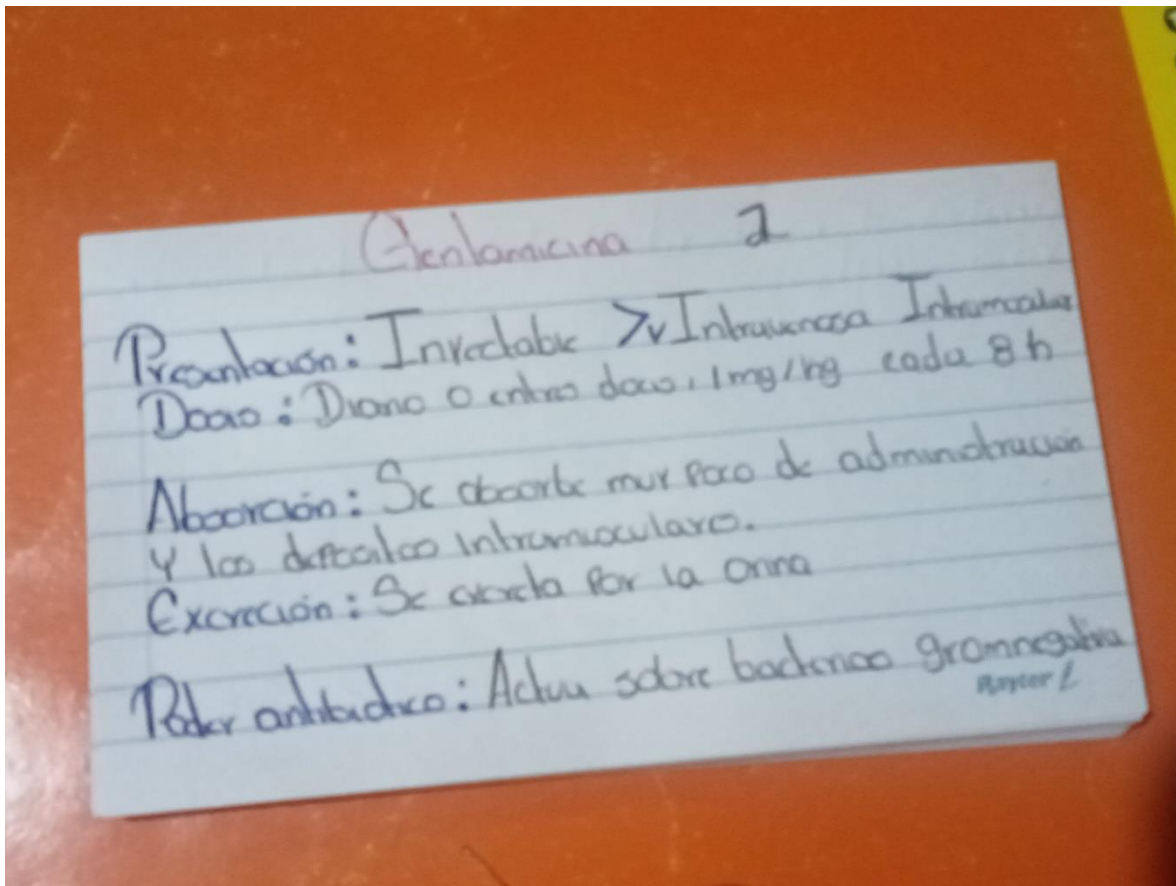 Gentamicina 2
Presentación: Inyectable > Intravenosa Intramuscular
Dosis: Diario o entre dosis, 1mg/kg cada 8 h
Absorción: Se absorbe muy poco de administración
Y los intramusculares.
Excreción: Se excreta Por la orina
Poder antibiótico: Actua sobre bacterias gramnegativa